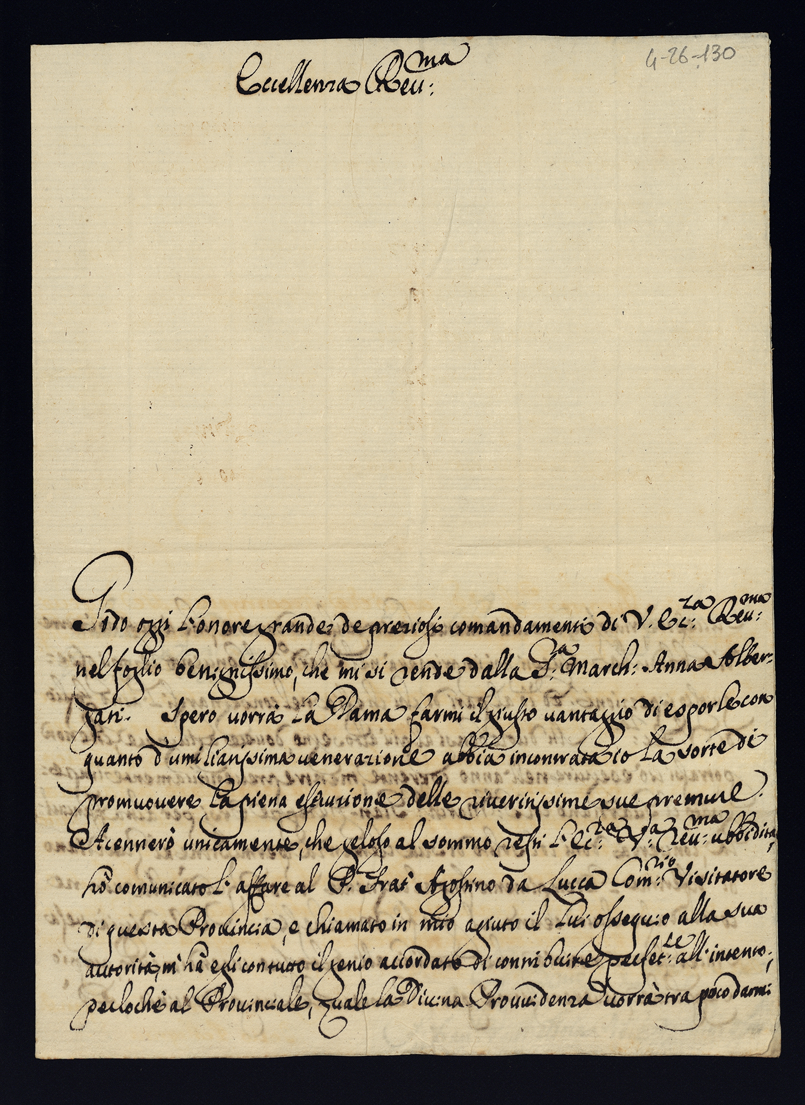 4-26-130
Eccellenza Reu:ma
Godo oggi l'onore grande de preziosi comandamenti di V. Ec:za Reu:ma
nel foglio benignissimo, che mi si rende dalla S:a March: Anna Alber-
gati. Spero vorrà la Dama farmi il giusto vantaggio di esporle con
quanto d'umilianissima venerazione abbia incontrata io la sorte di
promuovere la piena esecuzione delle riveritissime sue premure.
Acennerò unicamente, che geloso al sommo resti l'Ec:za V:a Reu:ma ubbidita,
hò comunicato l'affare al P. Frat' Agostino da Lucca Com:rio Visitatore
di questa Provincia, e chiamato in mio agiuto il lui ossequio alla sua
autorità, m'hà egli con tutto il genio accordato di contribuire perfet:te all'intento;
perlochè al Provinciale, quale la Divina Providenza vorrà tra poco darmi